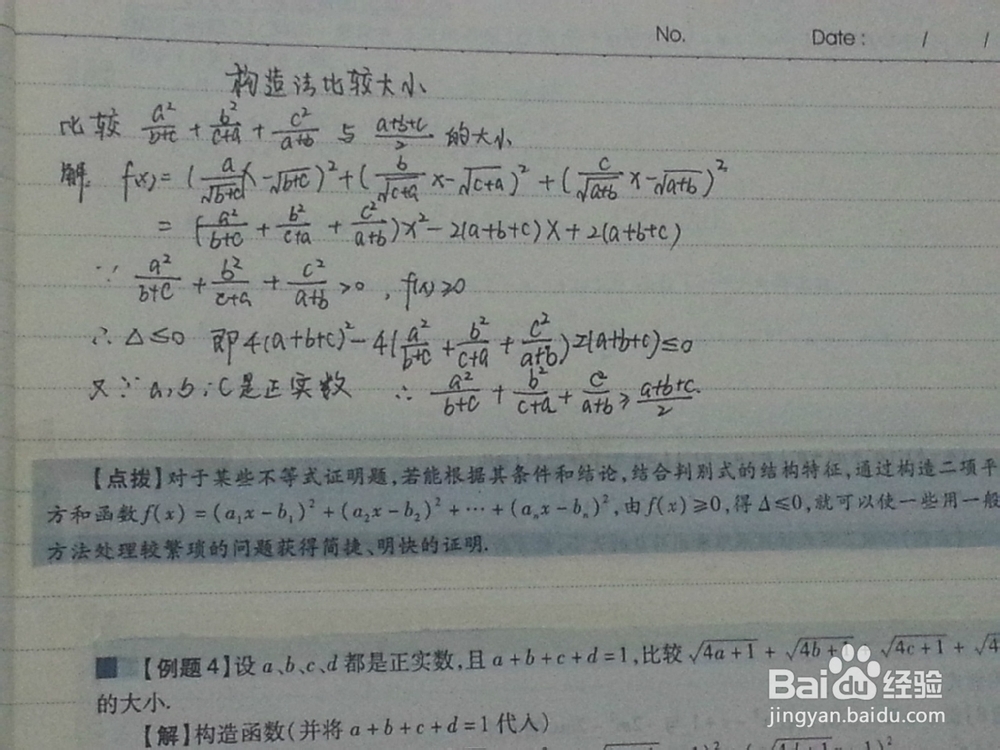 No. Date: / /
构造法比较大小
比较 a²/(b+c) + b²/(c+a) + c²/(a+b) 与 (a+b+c)/2 的大小
解. f(x) = (a/√(b+c) x - √(b+c))² + (b/√(c+a) x - √(c+a))² + (c/√(a+b) x - √(a+b))²
= (a²/(b+c) + b²/(c+a) + c²/(a+b)) x² - 2(a+b+c)x + 2(a+b+c)
∵ a²/(b+c) + b²/(c+a) + c²/(a+b) > 0 , f(x) ≥ 0
∴ Δ ≤ 0 即 4(a+b+c)² - 4(a²/(b+c) + b²/(c+a) + c²/(a+b)) 2(a+b+c) ≤ 0
又∵ a, b, c 是正实数 ∴ a²/(b+c) + b²/(c+a) + c²/(a+b) ≥ (a+b+c)/2.
【点拨】对于某些不等式证明题,若能根据其条件和结论,结合判别式的结构特征,通过构造二项平
方和函数 f(x) = (a₁x - b₁)² + (a₂x - b₂)² + ⋯ + (aₙx - bₙ)², 由 f(x) ≥ 0, 得 Δ ≤ 0, 就可以使一些用一般
方法处理较繁琐的问题获得简捷、明快的证明.
【例题4】设 a、b、c、d 都是正实数,且 a+b+c+d=1,比较 √(4a+1) + √(4b+1) + √(4c+1) + √4
的大小.
【解】构造函数(并将 a+b+c+d=1 代入)
Baidu经验
jingyan.baidu.com